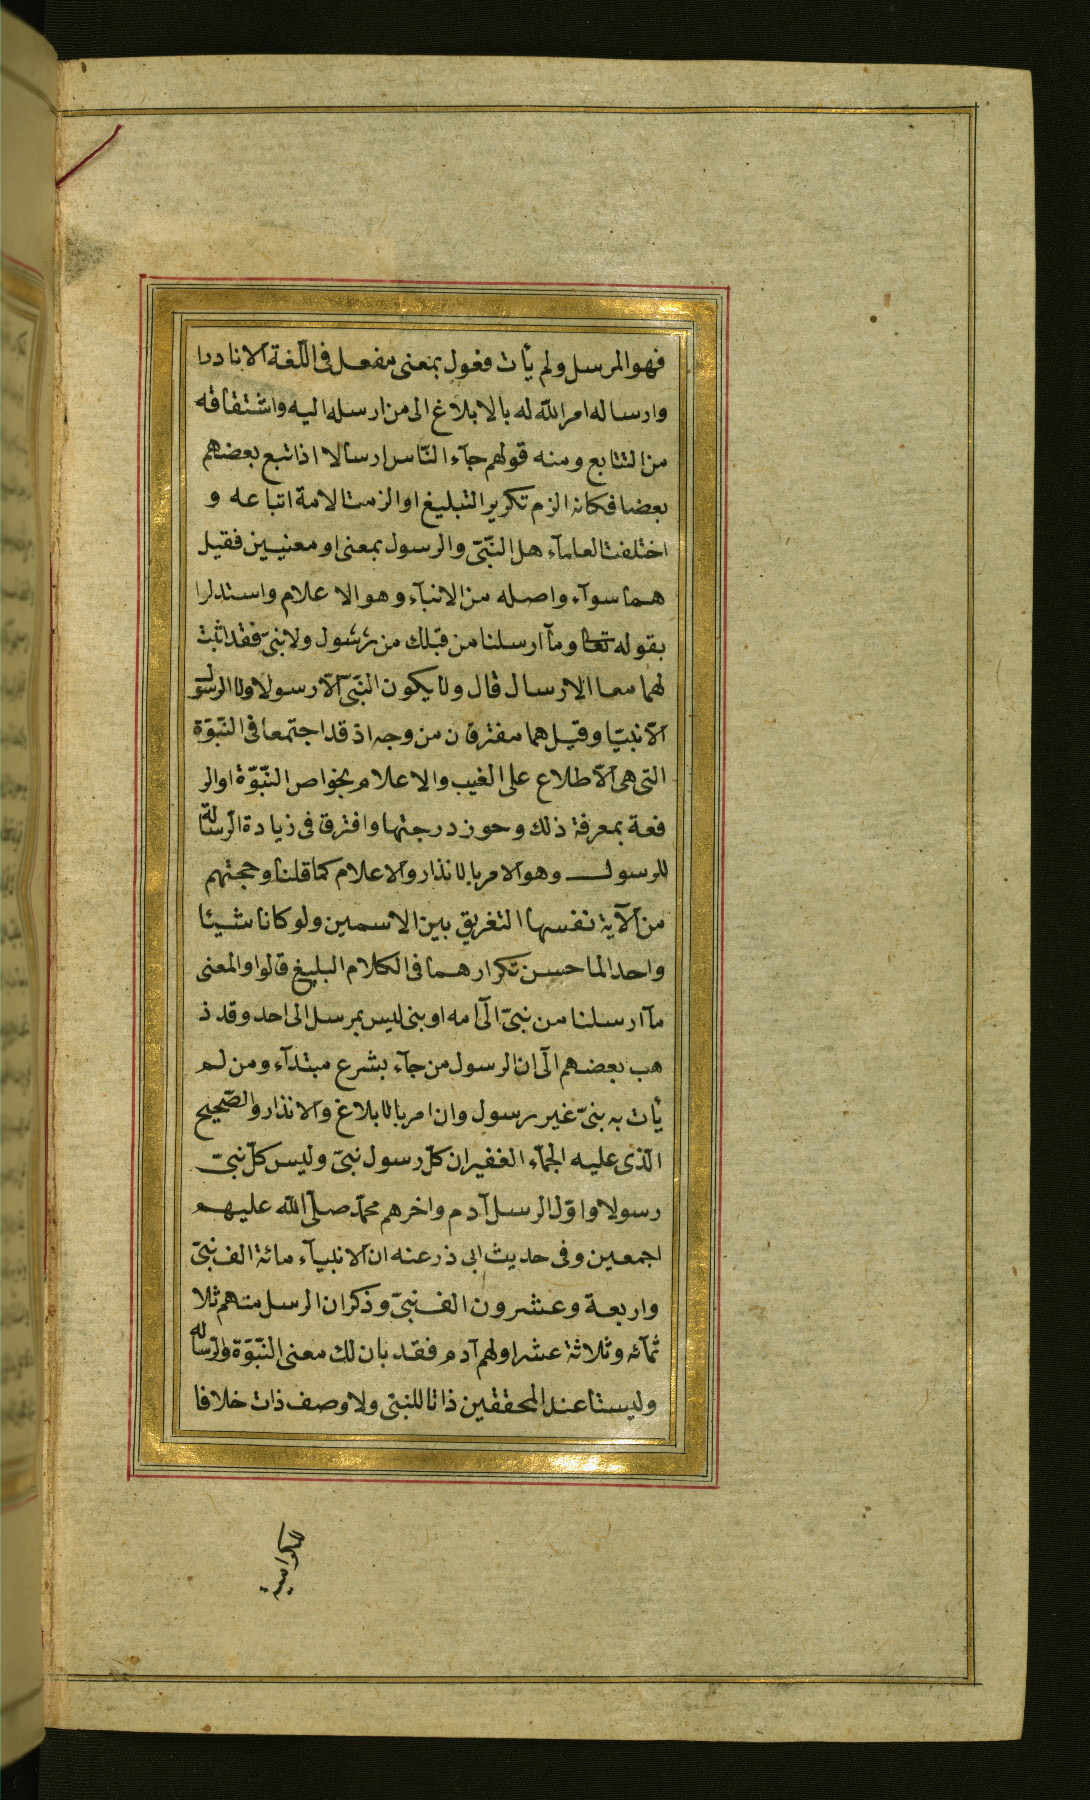 فهو المرسل ولم يأت فعول بمعنى مفعل فى اللّغة الا نادرا
وارساله امر اللّه له بالابلاغ الى من ارسله اليه واشتقاقه
من التتابع ومنه قولهم جآء النّاس ارسالا اذا تبع بعضهم
بعضا فكانه الزم تكرير التبليغ او الزمت الامة اتباعه و
اختلفت العلمآء هل النّبىّ والرسول بمعنى او معنيين فقيل
هما سوآء واصله من الانبآء وهو الاعلام واستدلرا
بقوله تعا ومآ ارسلنا من قبلك من رسول ولا نبىّ فقد اثبت
لهما معا الارسال قال ولا يكون النّبىّ الّا رسولا ولا الرسول
الّا نبيّا وقيل هما مفترقان من وجه اذ قد اجتمعا فى النّبوّة
التى هى الاطلاع على الغيب والاعلام بخواص النّبوّة او الر
فعة بمعرفة ذلك وحوز درجتها وافترقا فى زيادة الرّسالة
للرسول وهو الامر بالانذار والاعلام كما قلنا وحجتهم
من الآية نفسها التفريق بين الاسمين ولو كانا شيئا
واحدا لما حسن تكرارهما فى الكلام البليغ قالوا والمعنى
مآ ارسلنا من نبىّ الى امه او نبى ليس بمرسل الى احد وقد ذ
هب بعضهم الى ان الرسول من جآء بشرع مبتدآء ومن لم
يأت به نبىّ غير رسول وان امر بالابلاغ والانذار والصّحيح
الّذى عليه الجمّآء الغفير ان كلّ رسول نبىّ وليس كلّ نبىّ
رسولا واوّل الرسل آدم واخرهم محمّد صلّى اللّه عليهم
اجمعين وفى حديث ابى ذر عنه ان الانبيآء مائة الف نبىّ
واربعة وعشرون الف نبىّ وذكر ان الرسل منهم ثلا
ثمآئه وثلاثة عشر اولهم آدم فقد بان لك معنى النّبوّة والرّساله
وليستا عند المحققين ذاتا للنبىّ ولا وصف ذات خلافا
للكرامية